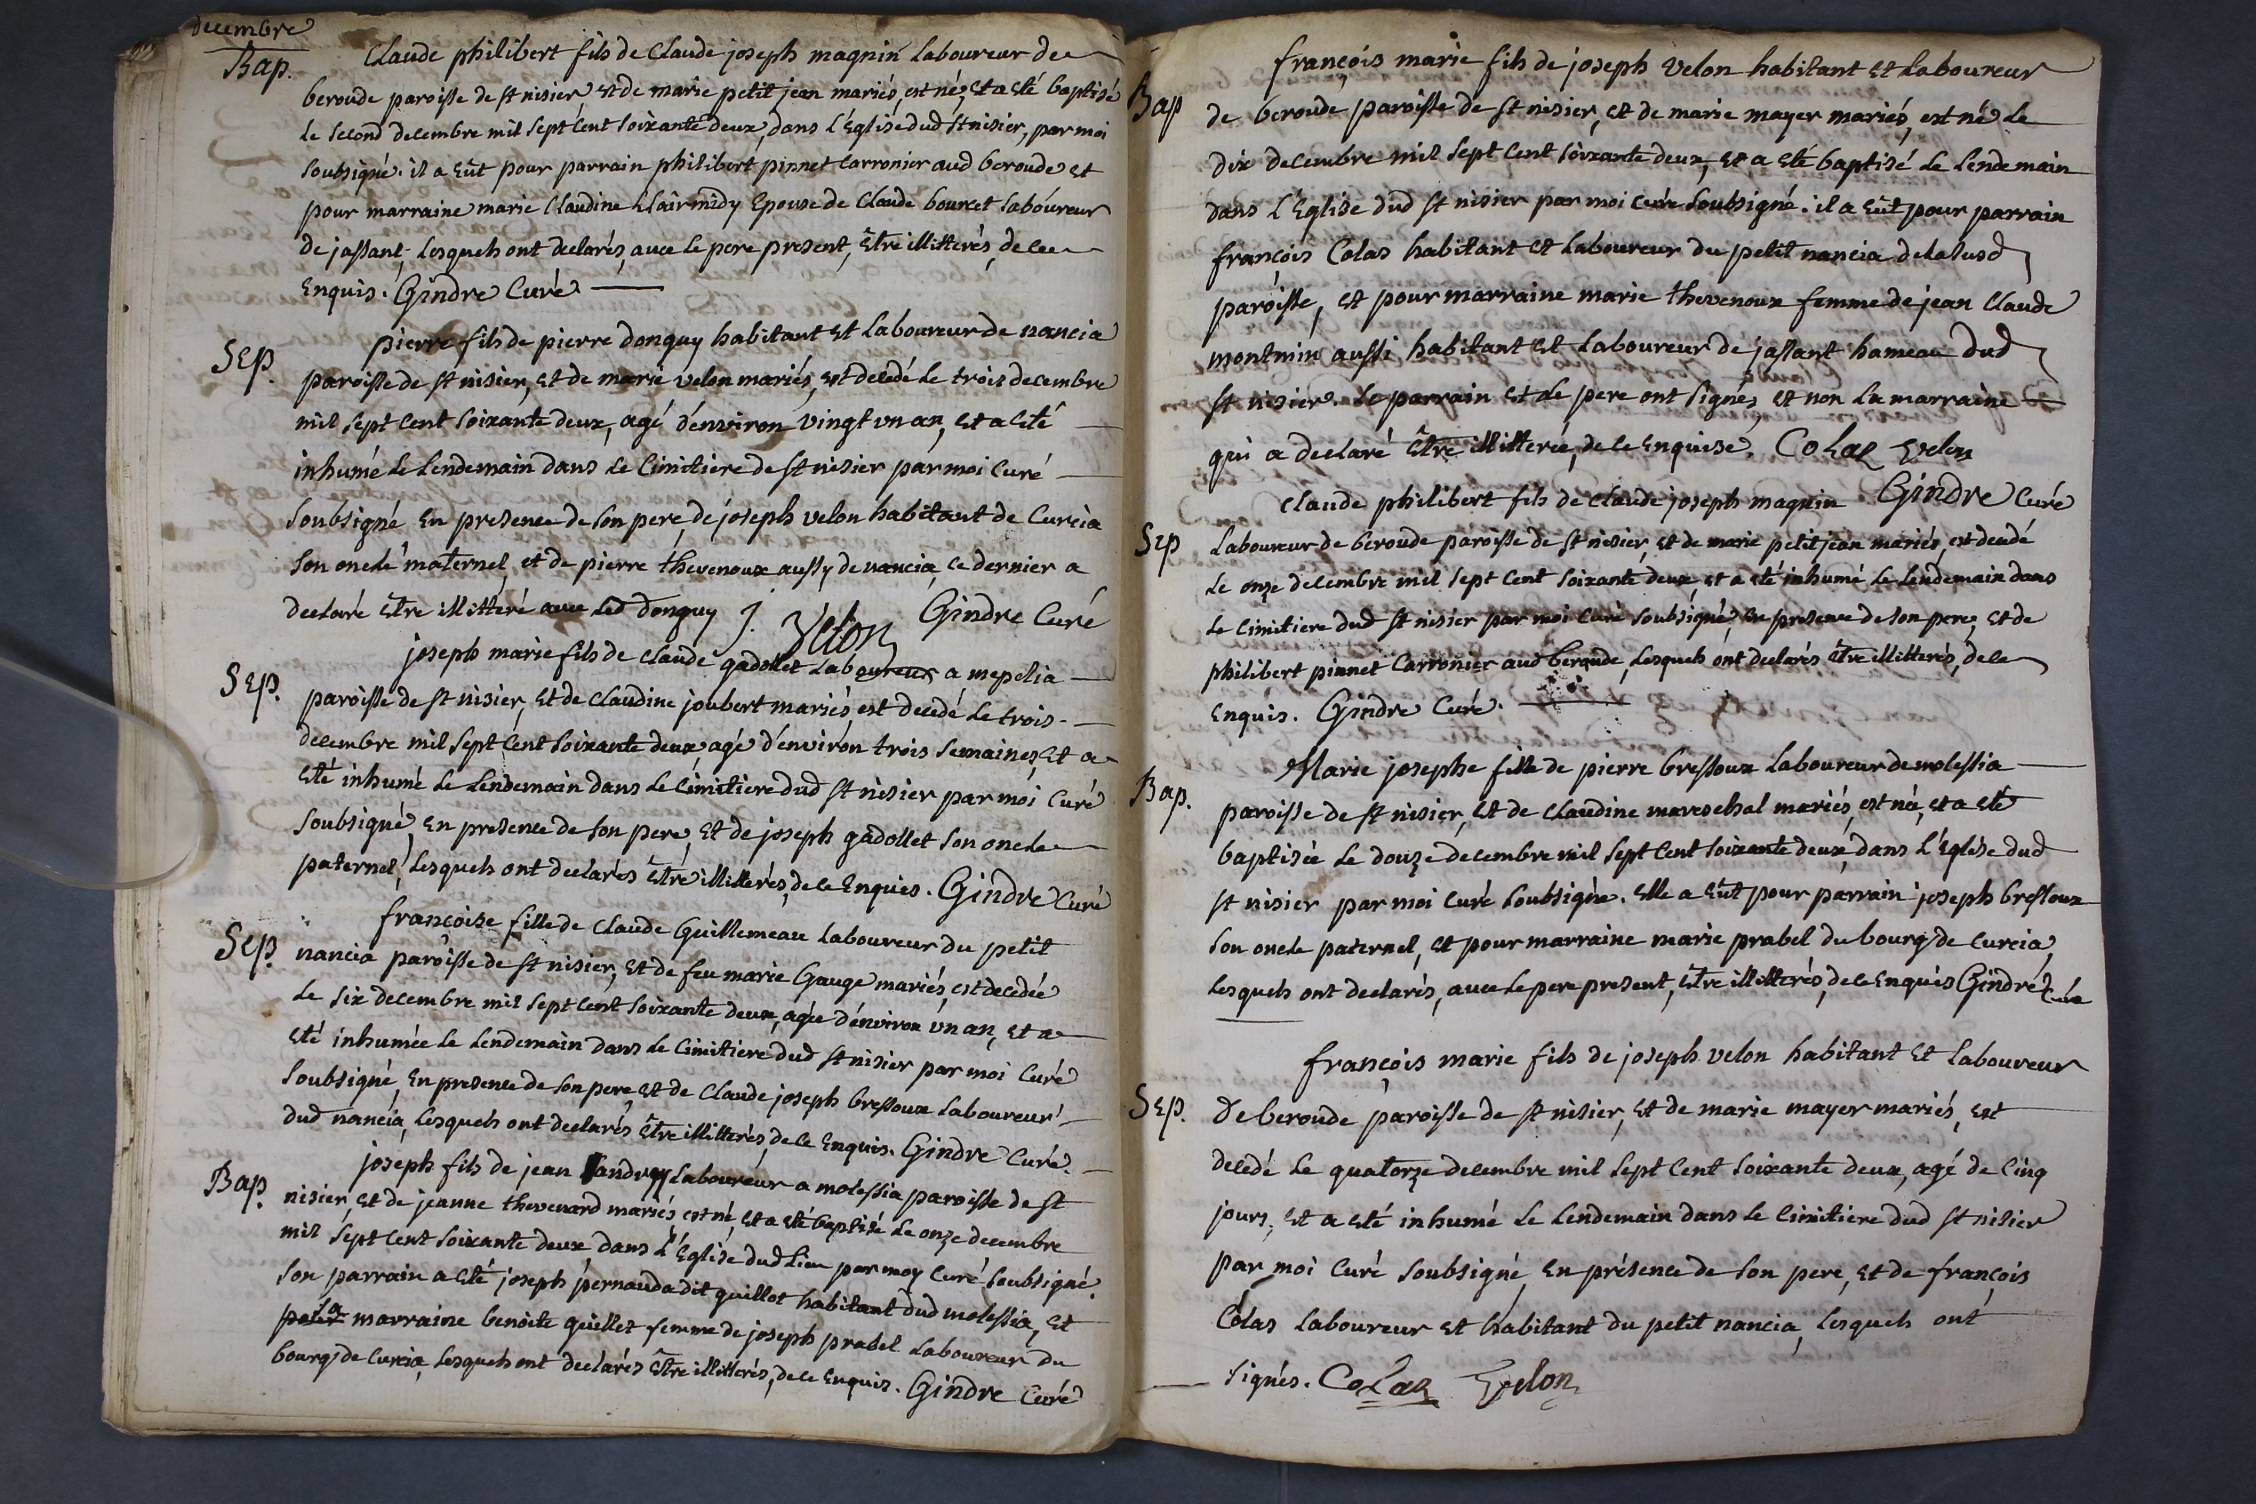 decembre
Bap. Claude philibert fils de Claude joseph magnin Laboureur de
beroude paroisse de st nisier et de marie petit jean mariés, est né, et a eté baptisé
le second decembre mil sept cent soixante deux, dans l'Eglise dud st nisier, par moi
soubsigné. il a eût pour parrain philibert pinnet carronier aud beroude et
pour marraine marie Claudine Clairmidy Epouse de Claude bourcet laboureur
de jassant, lesquels ont declarés, avec le pere present, être illitterés, de ce
Enquis. Gindre Curé
Sep. pierre fils de pierre donguy habitant et Laboureur de nancia
paroisse de st nisier, et de marie velon mariés, est decedé le trois decembre
mil sept cent soixante deux, agé d'environ vingt un an, et a eté
inhumé le lendemain dans le Cimitiere de st nisier par moi Curé
soubsigné, en presence de son pere, de joseph velon habitant de Curcia
son oncle maternel, et de pierre thevenoux aussy de nancia, ce dernier a
declaré être illitteré avec led donguy J. Velon Gindre Curé
Sep. joseph marie fils de Claude gadollet Laboureur a mepelia
paroisse de st nisier, et de Claudine joubert mariés, est decedé le trois
decembre mil sept cent soixante deux, agé d'environ trois semaines, et a
eté inhumé le lendemain dans le Cimitiere dud st nisier par moi Curé
soubsigné, en presence de son pere, et de joseph gadollet son oncle
paternel, lesquels ont declarés être illitterés, de ce Enquis. Gindre Curé
Sep. françoise fille de Claude Guillemeau laboureur du petit
nancia paroisse de st nisier, et de feu marie Gauge mariés, est decedée
le six decembre mil sept cent soixante deux, agée d'environ un an, et a
eté inhumée le lendemain dans le Cimitiere dud st nisier par moi Curé
soubsigné, en presence de son pere, et de Claude joseph bressoux Laboureur
dud nancia, lesquels ont declarés être illitterés, de ce Enquis. Gindre Curé.
Bap. joseph fils de jean Landroy Laboureur a molessia paroisse de st
nisier, et de jeanne thevenard mariés, est né, et a eté baptisé le onze decembre
mil sept cent soixante deux dans l'Eglise dud Lieu par moy Curé soubsigné.
son parrain a eté joseph pernauda dit quillot habitant dud molessia, et
la
pour marraine benoite quillet femme de joseph prabel Laboureur du
bourg de Curcia, lesquels ont declarés être illitterés, de ce Enquis. Gindre Curé
françois marie fils de joseph velon habitant et Laboureur
Bap de beroude paroisse de st nisier, et de marie mayer mariés, est né le
dix decembre mil sept cent soixante deux, et a eté baptisé le lendemain
dans l'Eglise dud st nisier par moi curé soubsigné. il a eût pour parrain
françois Colas habitant et laboureur du petit nancia de la susd
paroisse, et pour marraine marie thevenoux femme de jean Claude
montmin aussi habitant et Laboureur de jassant hameau dud
st nisier. le parrain et le pere ont signés, et non la marraine
qui a declaré être illitterée, de ce Enquise. Colas Velon
Claude philibert fils de Claude joseph magnin Gindre Curé
Sep Laboureur de beroude paroisse de st nisier, et de marie petit jean mariés, est decedé
le onze decembre mil sept cent soixante deux, et a eté inhumé le lendemain dans
le Cimitiere dud st nisier par moi Curé soubsigné, en presence de son pere, et de
philibert pinnet Carronier aud beroude, lesquels ont declarés être illitterés, de ce
Enquis. Gindre Curé.
Marie josephe fille de pierre bressoux Laboureur de molessia
Bap. paroisse de st nisier, et de Claudine mareschal mariés, est née, et a eté
baptisée le douze decembre mil sept cent soixante deux, dans l'Eglise dud
st nisier par moi Curé soubsigné. Elle a eût pour parrain joseph bressoux
son oncle paternel, et pour marraine marie prabel du bourg de Curcia,
lesquels ont declarés, avec le pere present, être illitterés, de ce Enquis Gindre Curé
françois marie fils de joseph velon habitant et Laboureur
Sep. de beroude paroisse de st nisier, et de marie mayer mariés, est
decedé le quatorze decembre mil sept cent soixante deux, agé de Cinq
jours, et a eté inhumé le lendemain dans le Cimitiere dud st nisier
par moi Curé soubsigné, en présence de son pere, et de françois
Colas laboureur et habitant du petit nancia, lesquels ont
signés. Colas Velon